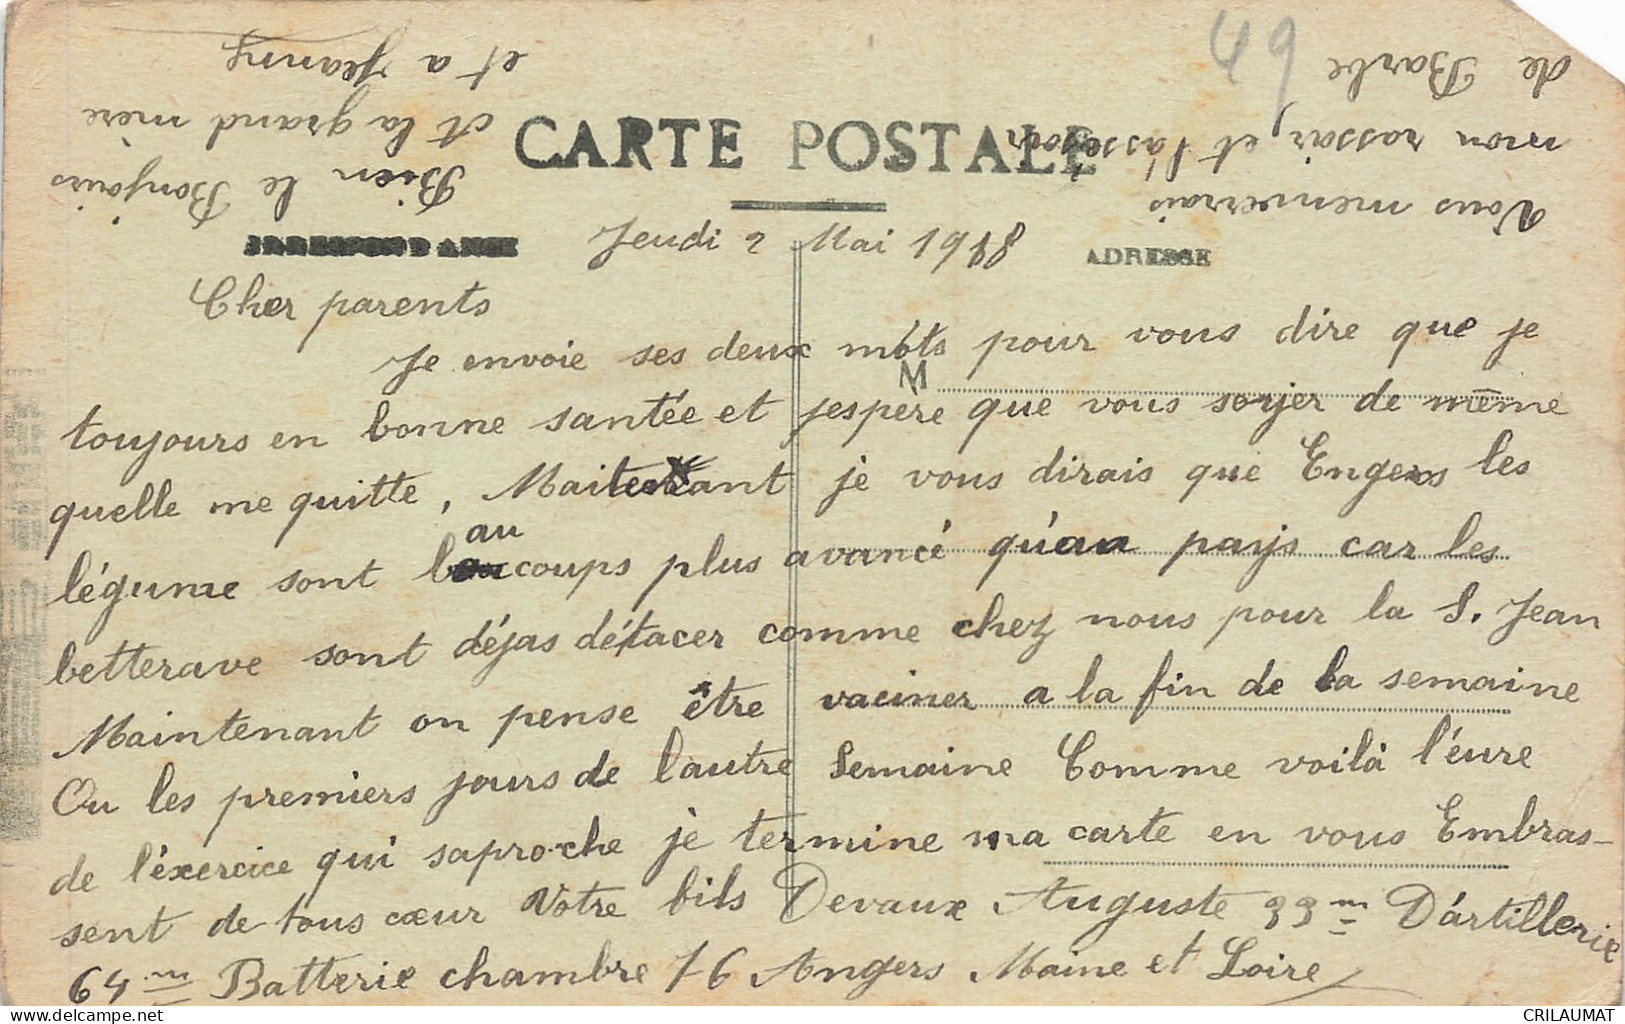 49
CARTE POSTALE
ADRESSE
Jeudi 2 Mai 1918
Cher parents
Je envoie ses deux mots pour vous dire que je
M
toujours en bonne santée et jespère que vous soyer de même
quelle me quitte, Maitenant je vous dirais que Engers les
au
légume sont beaucoups plus avancé qu'au pays car les
betterave sont déjas détacer comme chez nous pour la S. Jean
Maintenant on pense être vaciner a la fin de la semaine
Ou les premiers jours de l'autre Semaine Comme voilà l'eure
de l'éxercice qui saproche je termine ma carte en vous Embras-
sent de tous cœur Votre fils Devaux Auguste 33m D'artillerie
64m Batterie chambre 76 Angers Maine et Loire
Vous menverrais
mon rassoir, et l'assegoir
de Barbe
Bien le Bonjours
et la grand mère
et a Jeanne
CRILAUMAT